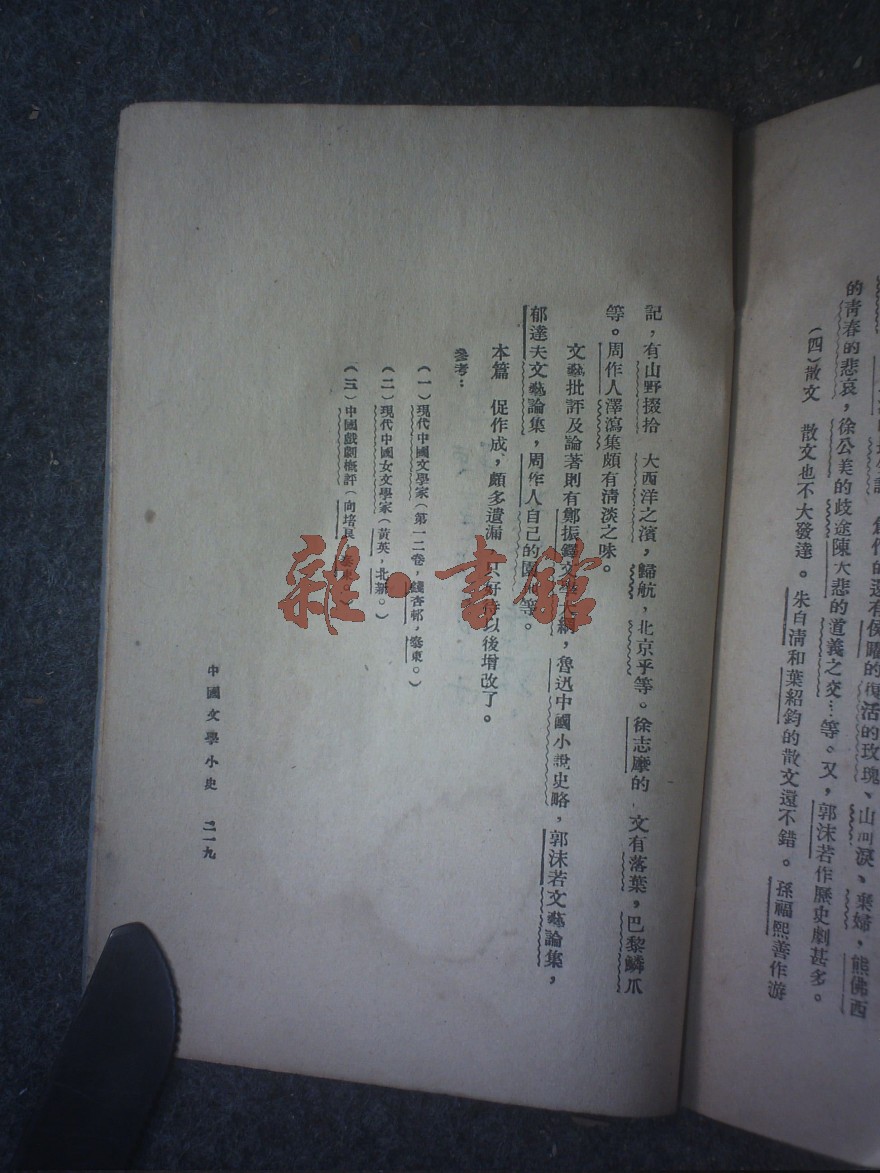 創作的還有侯曜的復活的玫瑰、山河淚、棄婦，熊佛西
的青春的悲哀，徐公美的歧途陳大悲的道義之交…等。又，郭沫若作歷史劇甚多。
（四）散文　散文也不大發達。朱自清和葉紹鈞的散文還不錯。孫福熙善作游
記，有山野掇拾　大西洋之濱，歸航，北京乎等。徐志摩的　文有落葉，巴黎鱗爪
等。周作人澤瀉集頗有清淡之味。
文藝批評及論著則有鄭振鐸文學大綱，魯迅中國小說史略，郭沫若文藝論集，
郁達夫文藝論集，周作人自己的園地等。
本篇　促作成，頗多遺漏　只好待以後增改了。
參考：
（一）現代中國文學家（第一二卷，錢杏邨，泰東。）
（二）現代中國女文學家（黃英，北新。）
（三）中國戲劇概評（向培良，泰東。）
中國文學小史　二一九
雜·書館